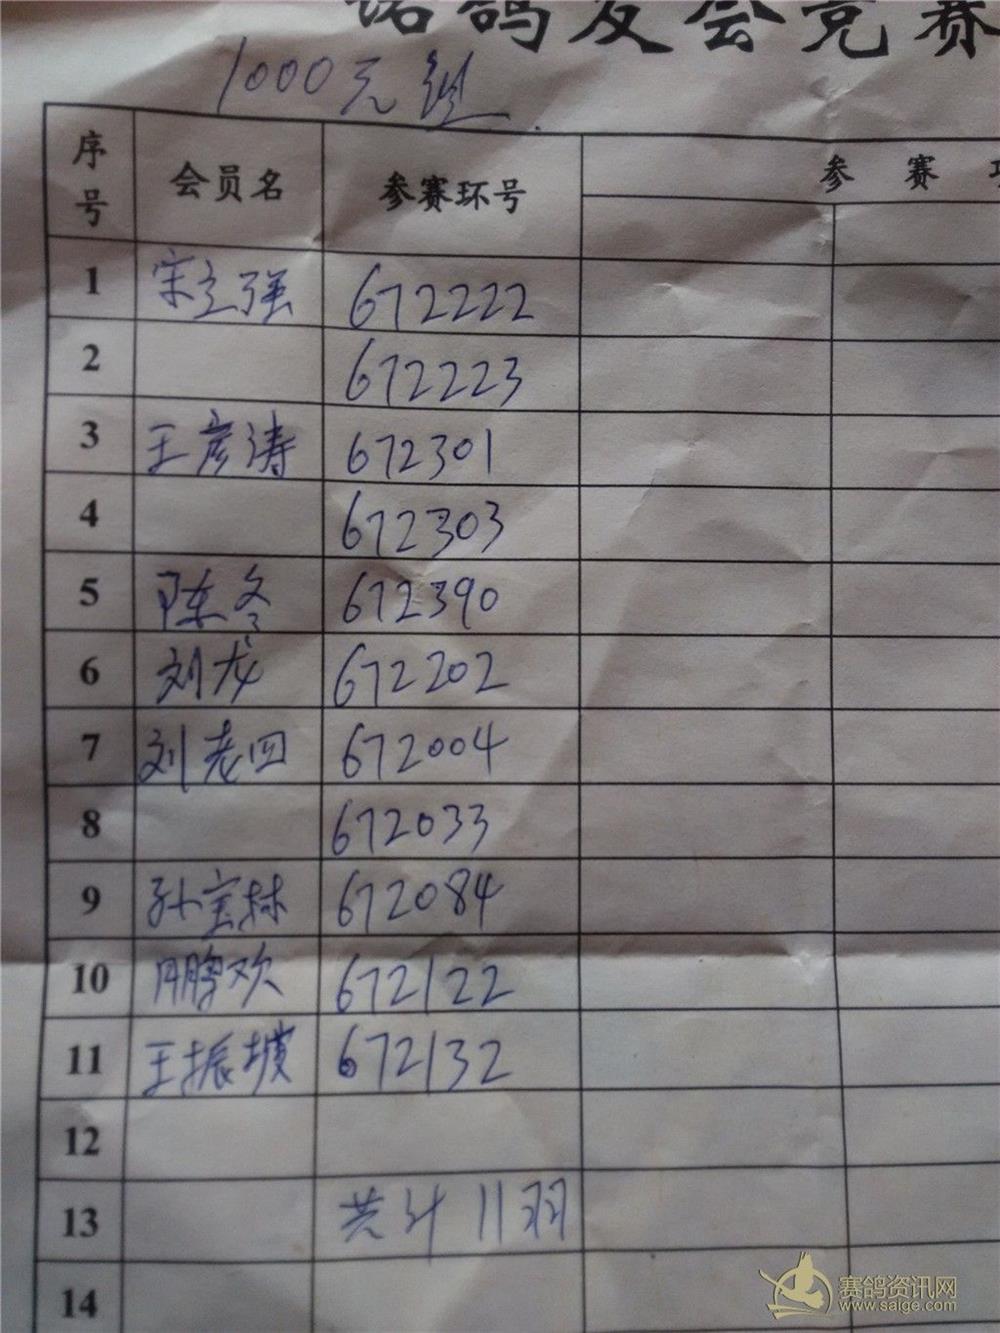 鸽友会竞赛
1000元组
序号 会员名 参赛环号 参 赛
1 宋立强 672222
2 672223
3 王彦涛 672301
4 672303
5 陈冬 672390
6 刘龙 672202
7 刘老四 672004
8 672033
9 孙宝林 672084
10 鹏欢 672122
11 王振 672132
12
13 共计 11羽
14
赛鸽资讯网
www.saige.com